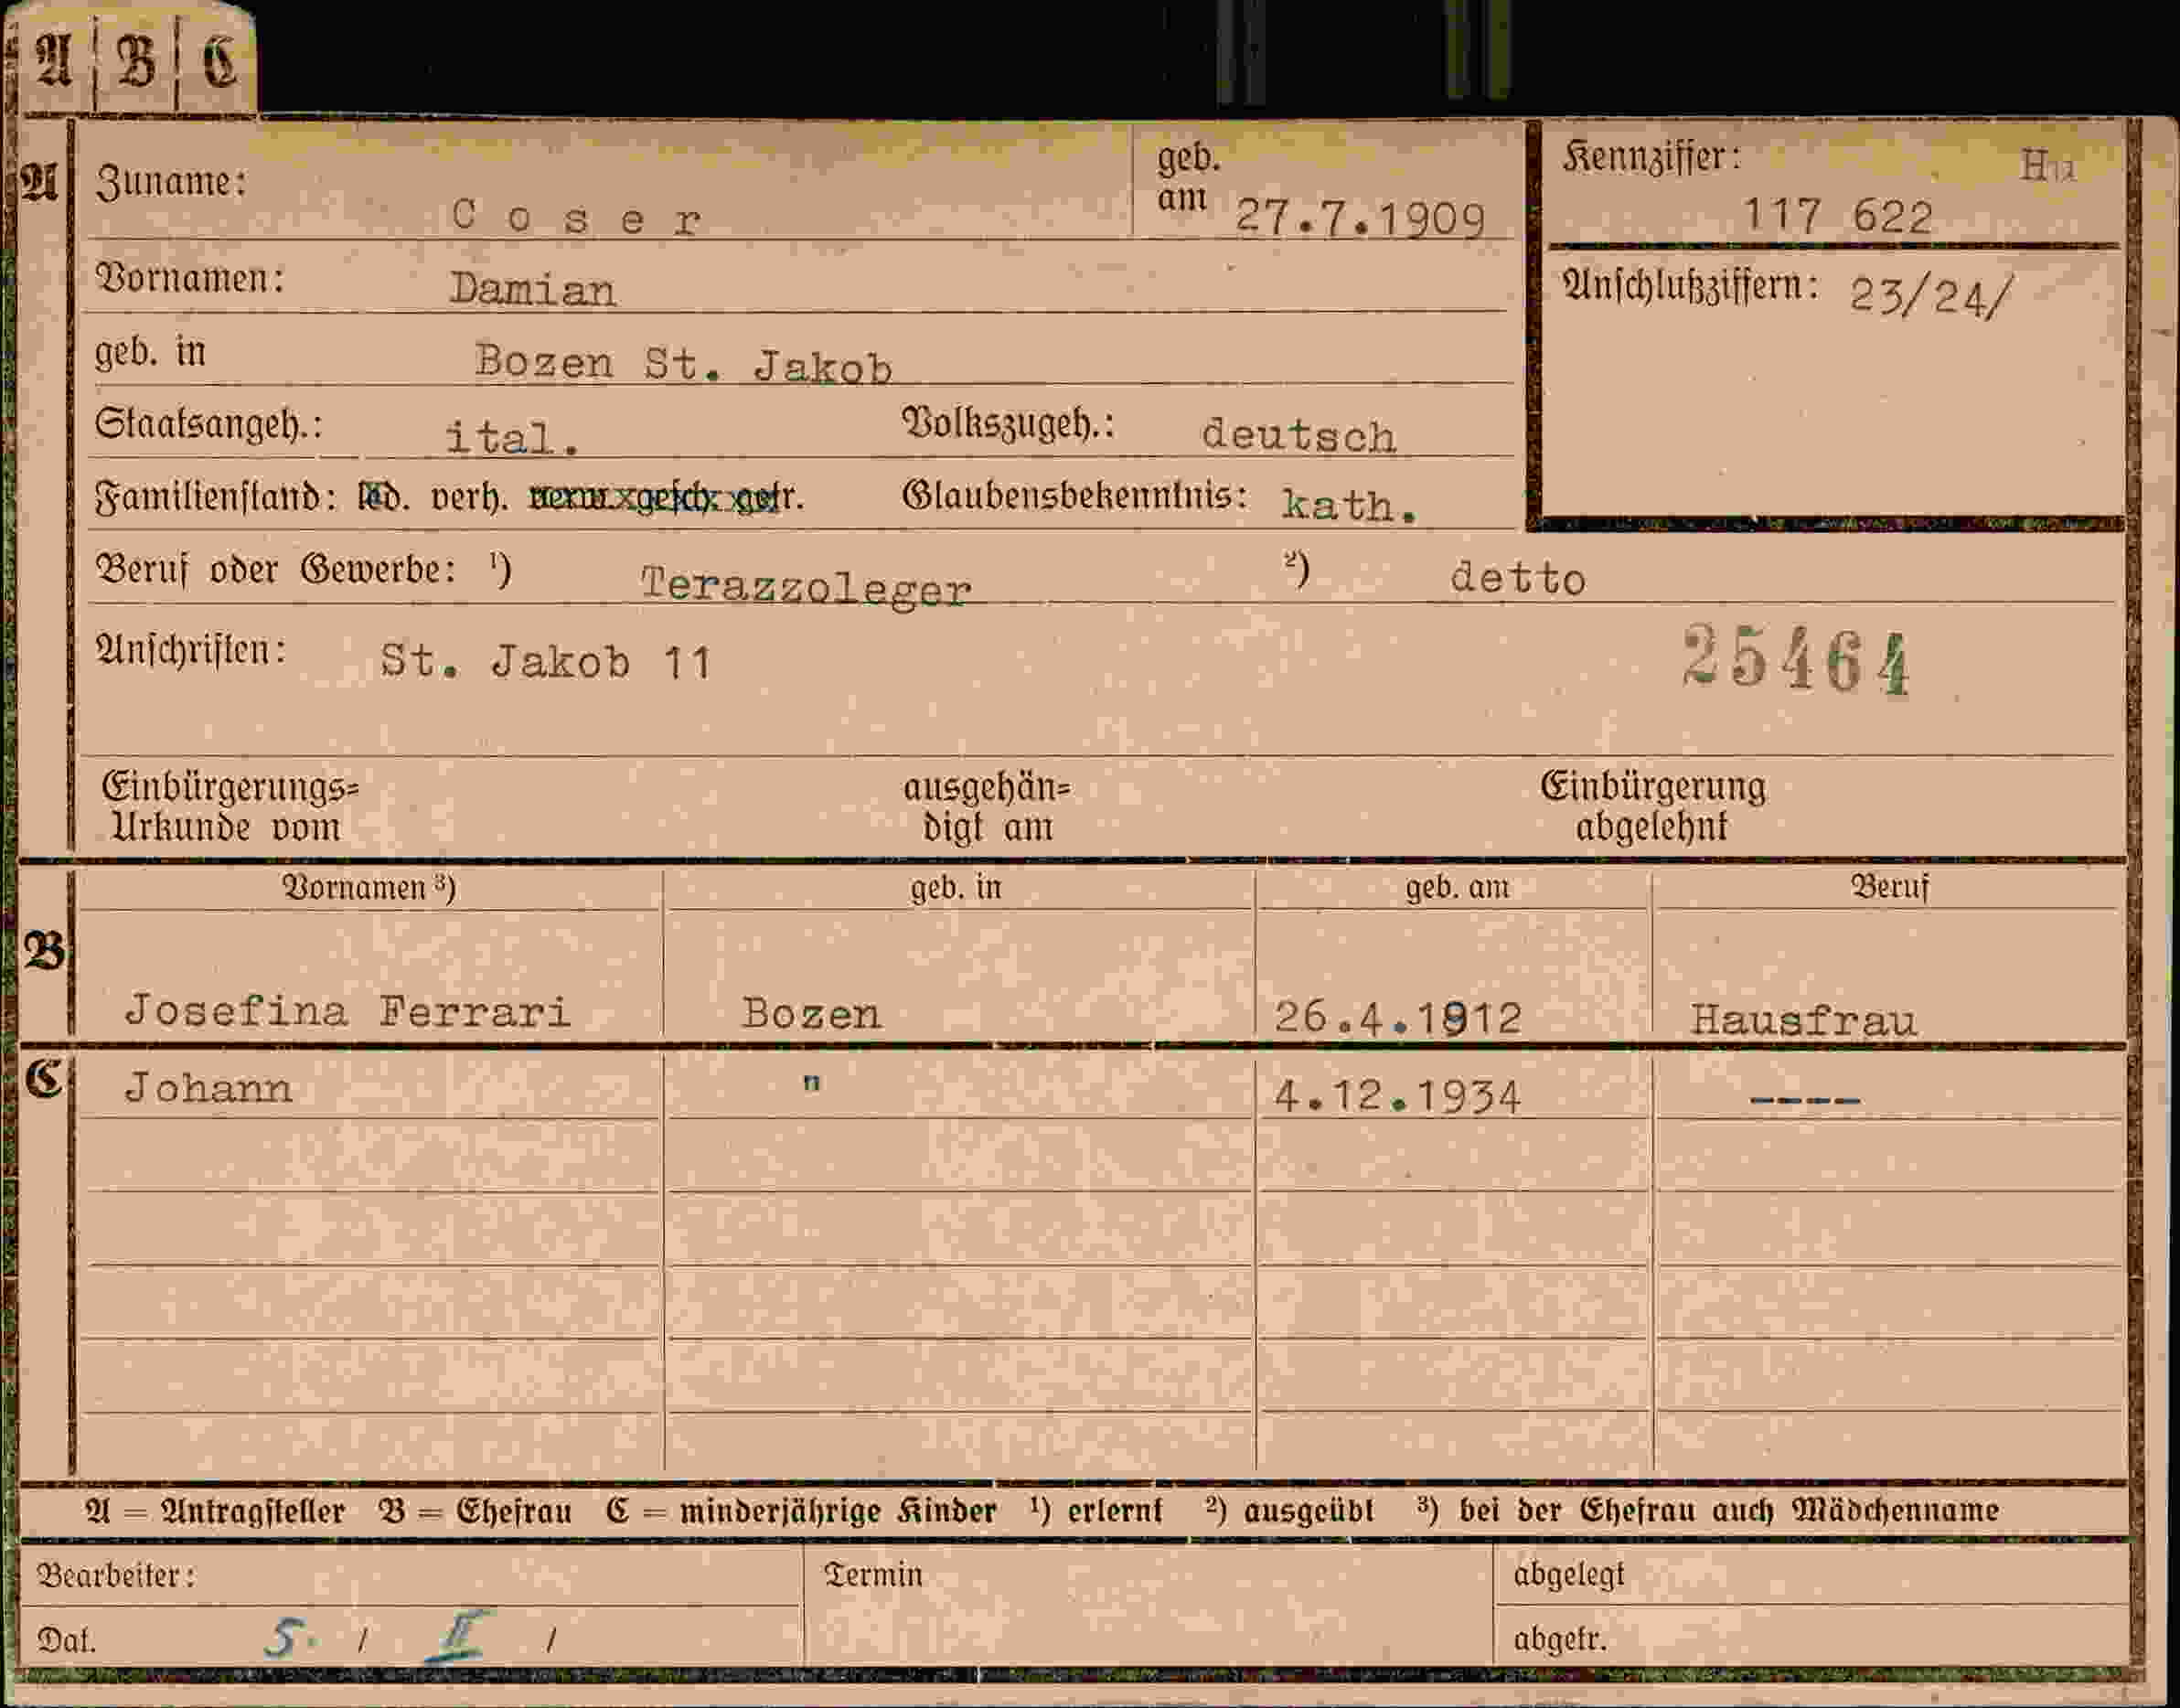 A B C
A Zuname: Coser geb. am 27.7.1909 Kennziffer: Hu
117 622
Vornamen: Damian Anschlußziffern: 23/24/
geb. in Bozen St. Jakob
Staatsangeh.: ital. Volkszugeh.: deutsch
Familienstand: led. verh. verw. gesch. getr. Glaubensbekenntnis: kath.
Beruf oder Gewerbe: ¹) Terazzoleger ²) detto
Anschriften: St. Jakob 11 25464
Einbürgerungs= ausgehän= Einbürgerung
Urkunde vom digt am abgelehnt
Vornamen ³) geb. in geb. am Beruf
B Josefina Ferrari Bozen 26.4.1912 Hausfrau
C Johann " 4.12.1934 ----
A = Antragsteller B = Ehefrau C = minderjährige Kinder ¹) erlernt ²) ausgeübt ³) bei der Ehefrau auch Mädchenname
Bearbeiter: Termin abgelegt
Dat. 5. / II / abgetr.